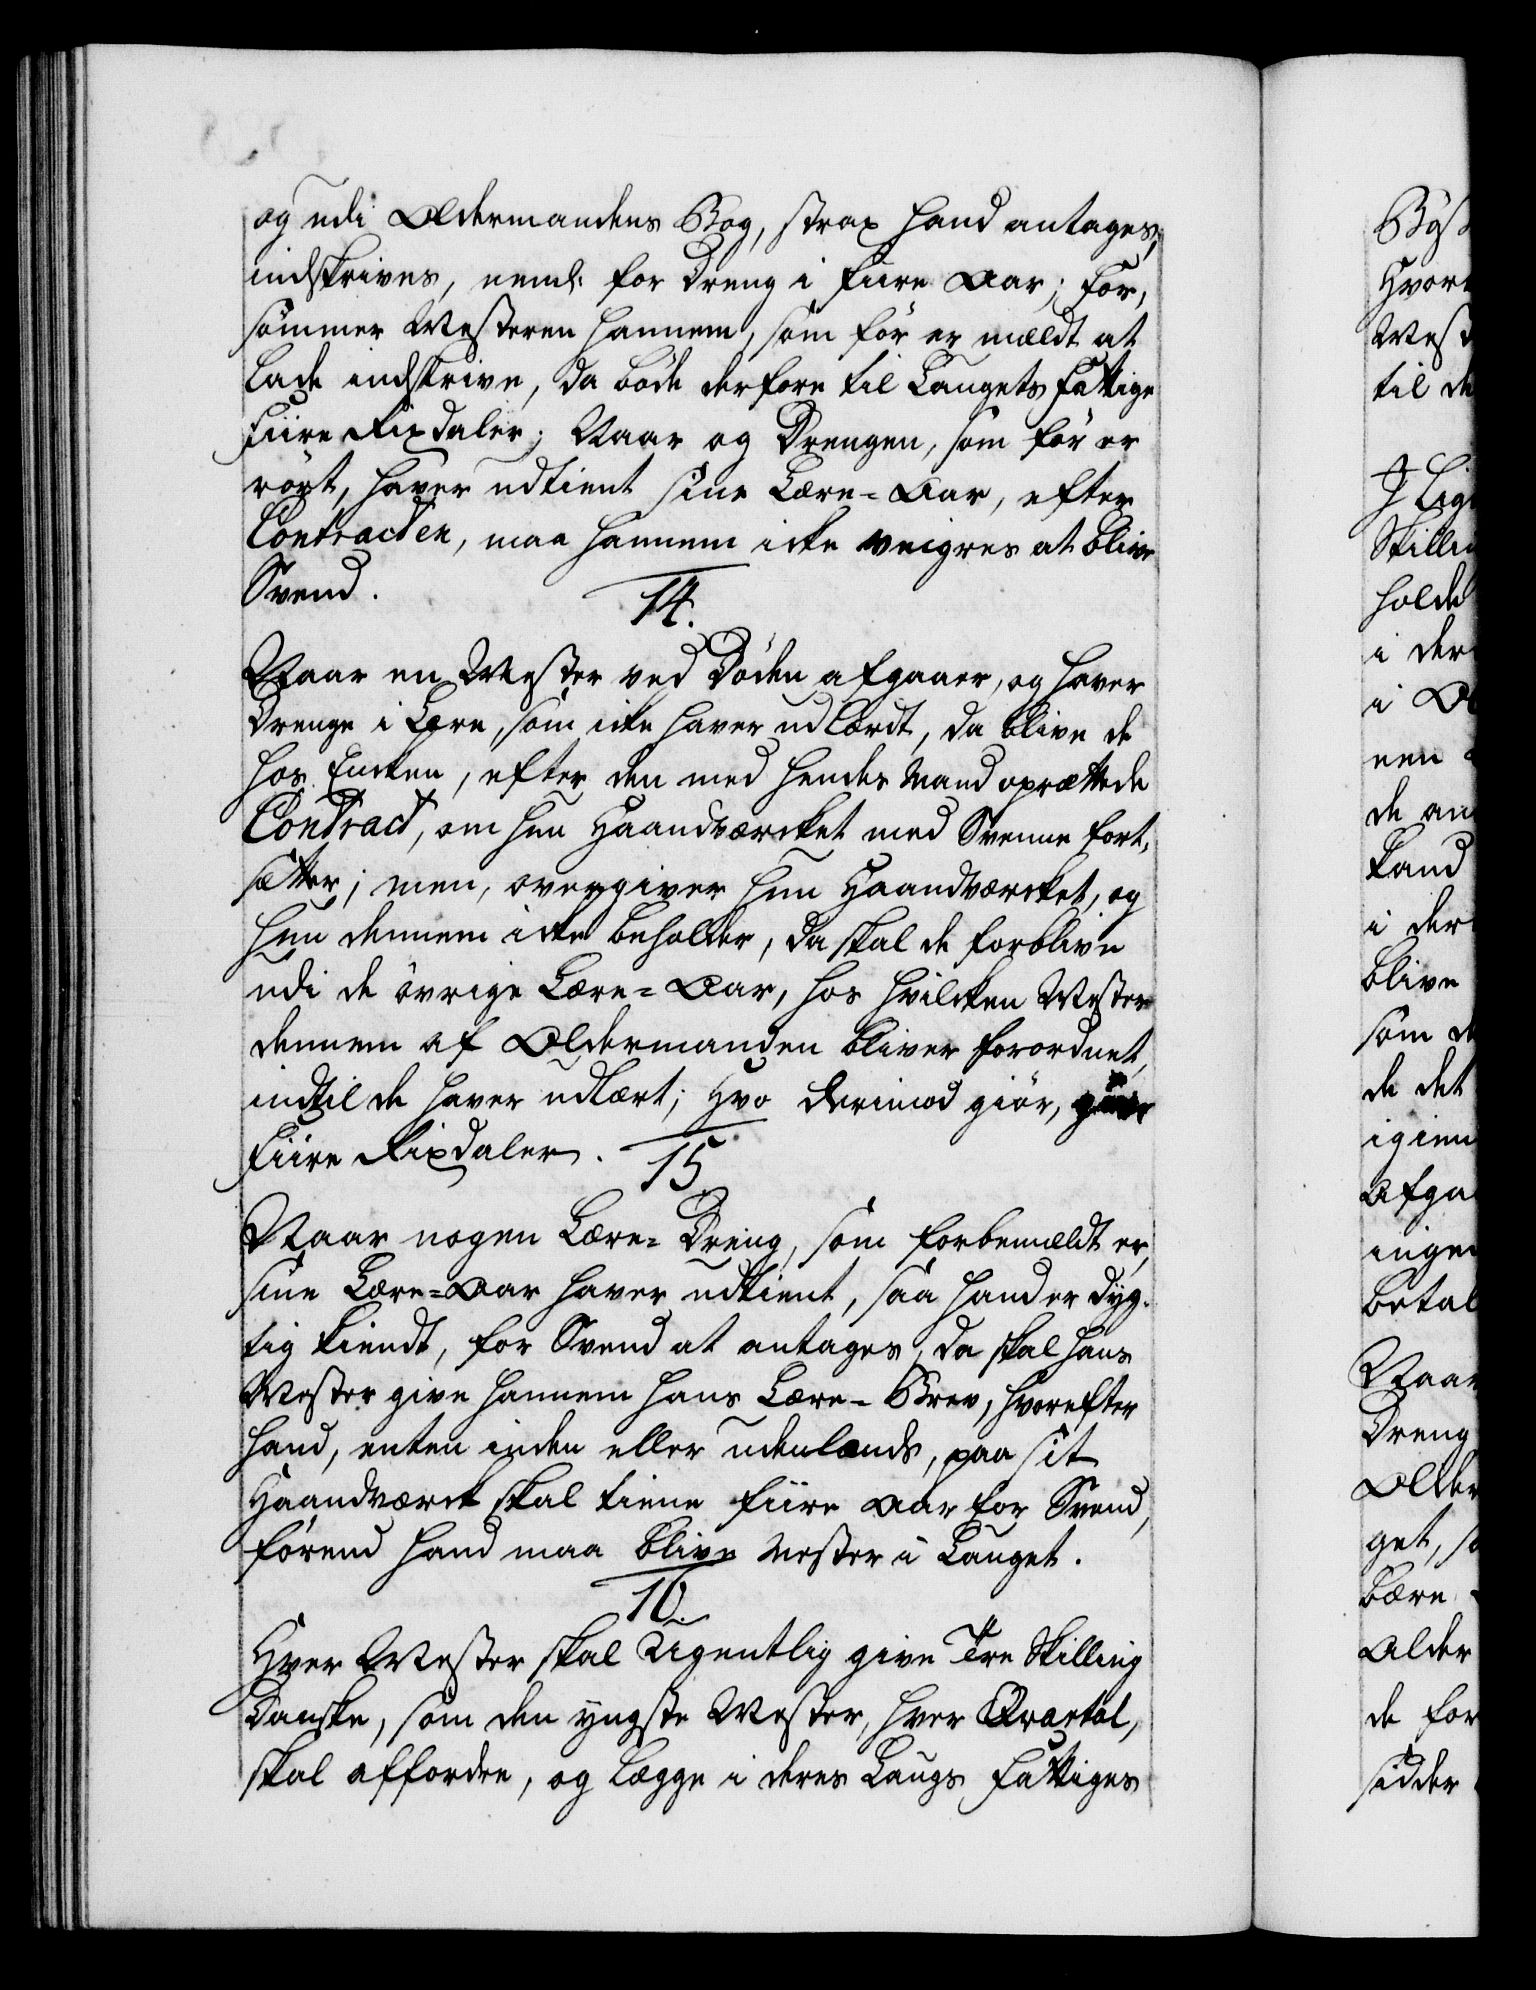 og udi Oldermandens Bog, strax hand antages,
indskrives, neml: for Dreng i fiire Aar; for,
sømmer Mesteren hannem, som før er meldt at
lade indskrive, da bøde derfore til Laugets Fattige
fiire Rixdaler; Naar og Drengen, som før er
rørt, haver udtient sine Lære-Aar, efter
Contracten, maa hannem icke veigres at blive
Svend.
14.
Naar en Mester ved Døden afgaaer, og haver
Drenge i Lære, som icke haver udlærdt, da blive de
hos Encken, efter den med hendes Mand oprættede
Contract, om hun Haandværcket med Svenne fort,
sætter; men, overgiver hun Haandværcket, og
hun dennem icke beholder, da skal de forblive
udi de øvrige Lære-Aar, hos hvilcken Mester
dennem af Oldermanden bliver forordnet,
indtil de haver udlært; Hvo derimod giør,
fiire Rixdaler.
15
Naar nogen Lære-Dreng, som forbemældt er,
sine Lære-Aar haver udtient, saa hand er dyg-
tig kiendt, for Svend at antages, da skal hans
Mester give hannem hans Lære-Brev, hvorefter
hand, enten inden eller udenlands, paa sit
Haandværck skal tiene fiire Aar for Svend,
førend hand maa blive Mester i Lauget.
16.
Hver Mester skal Ugentlig give Tre Skilling
Danske, som den yngste Mester, hver Qvartal,
skal affordre, og lægge i deres Laugs Fattiges